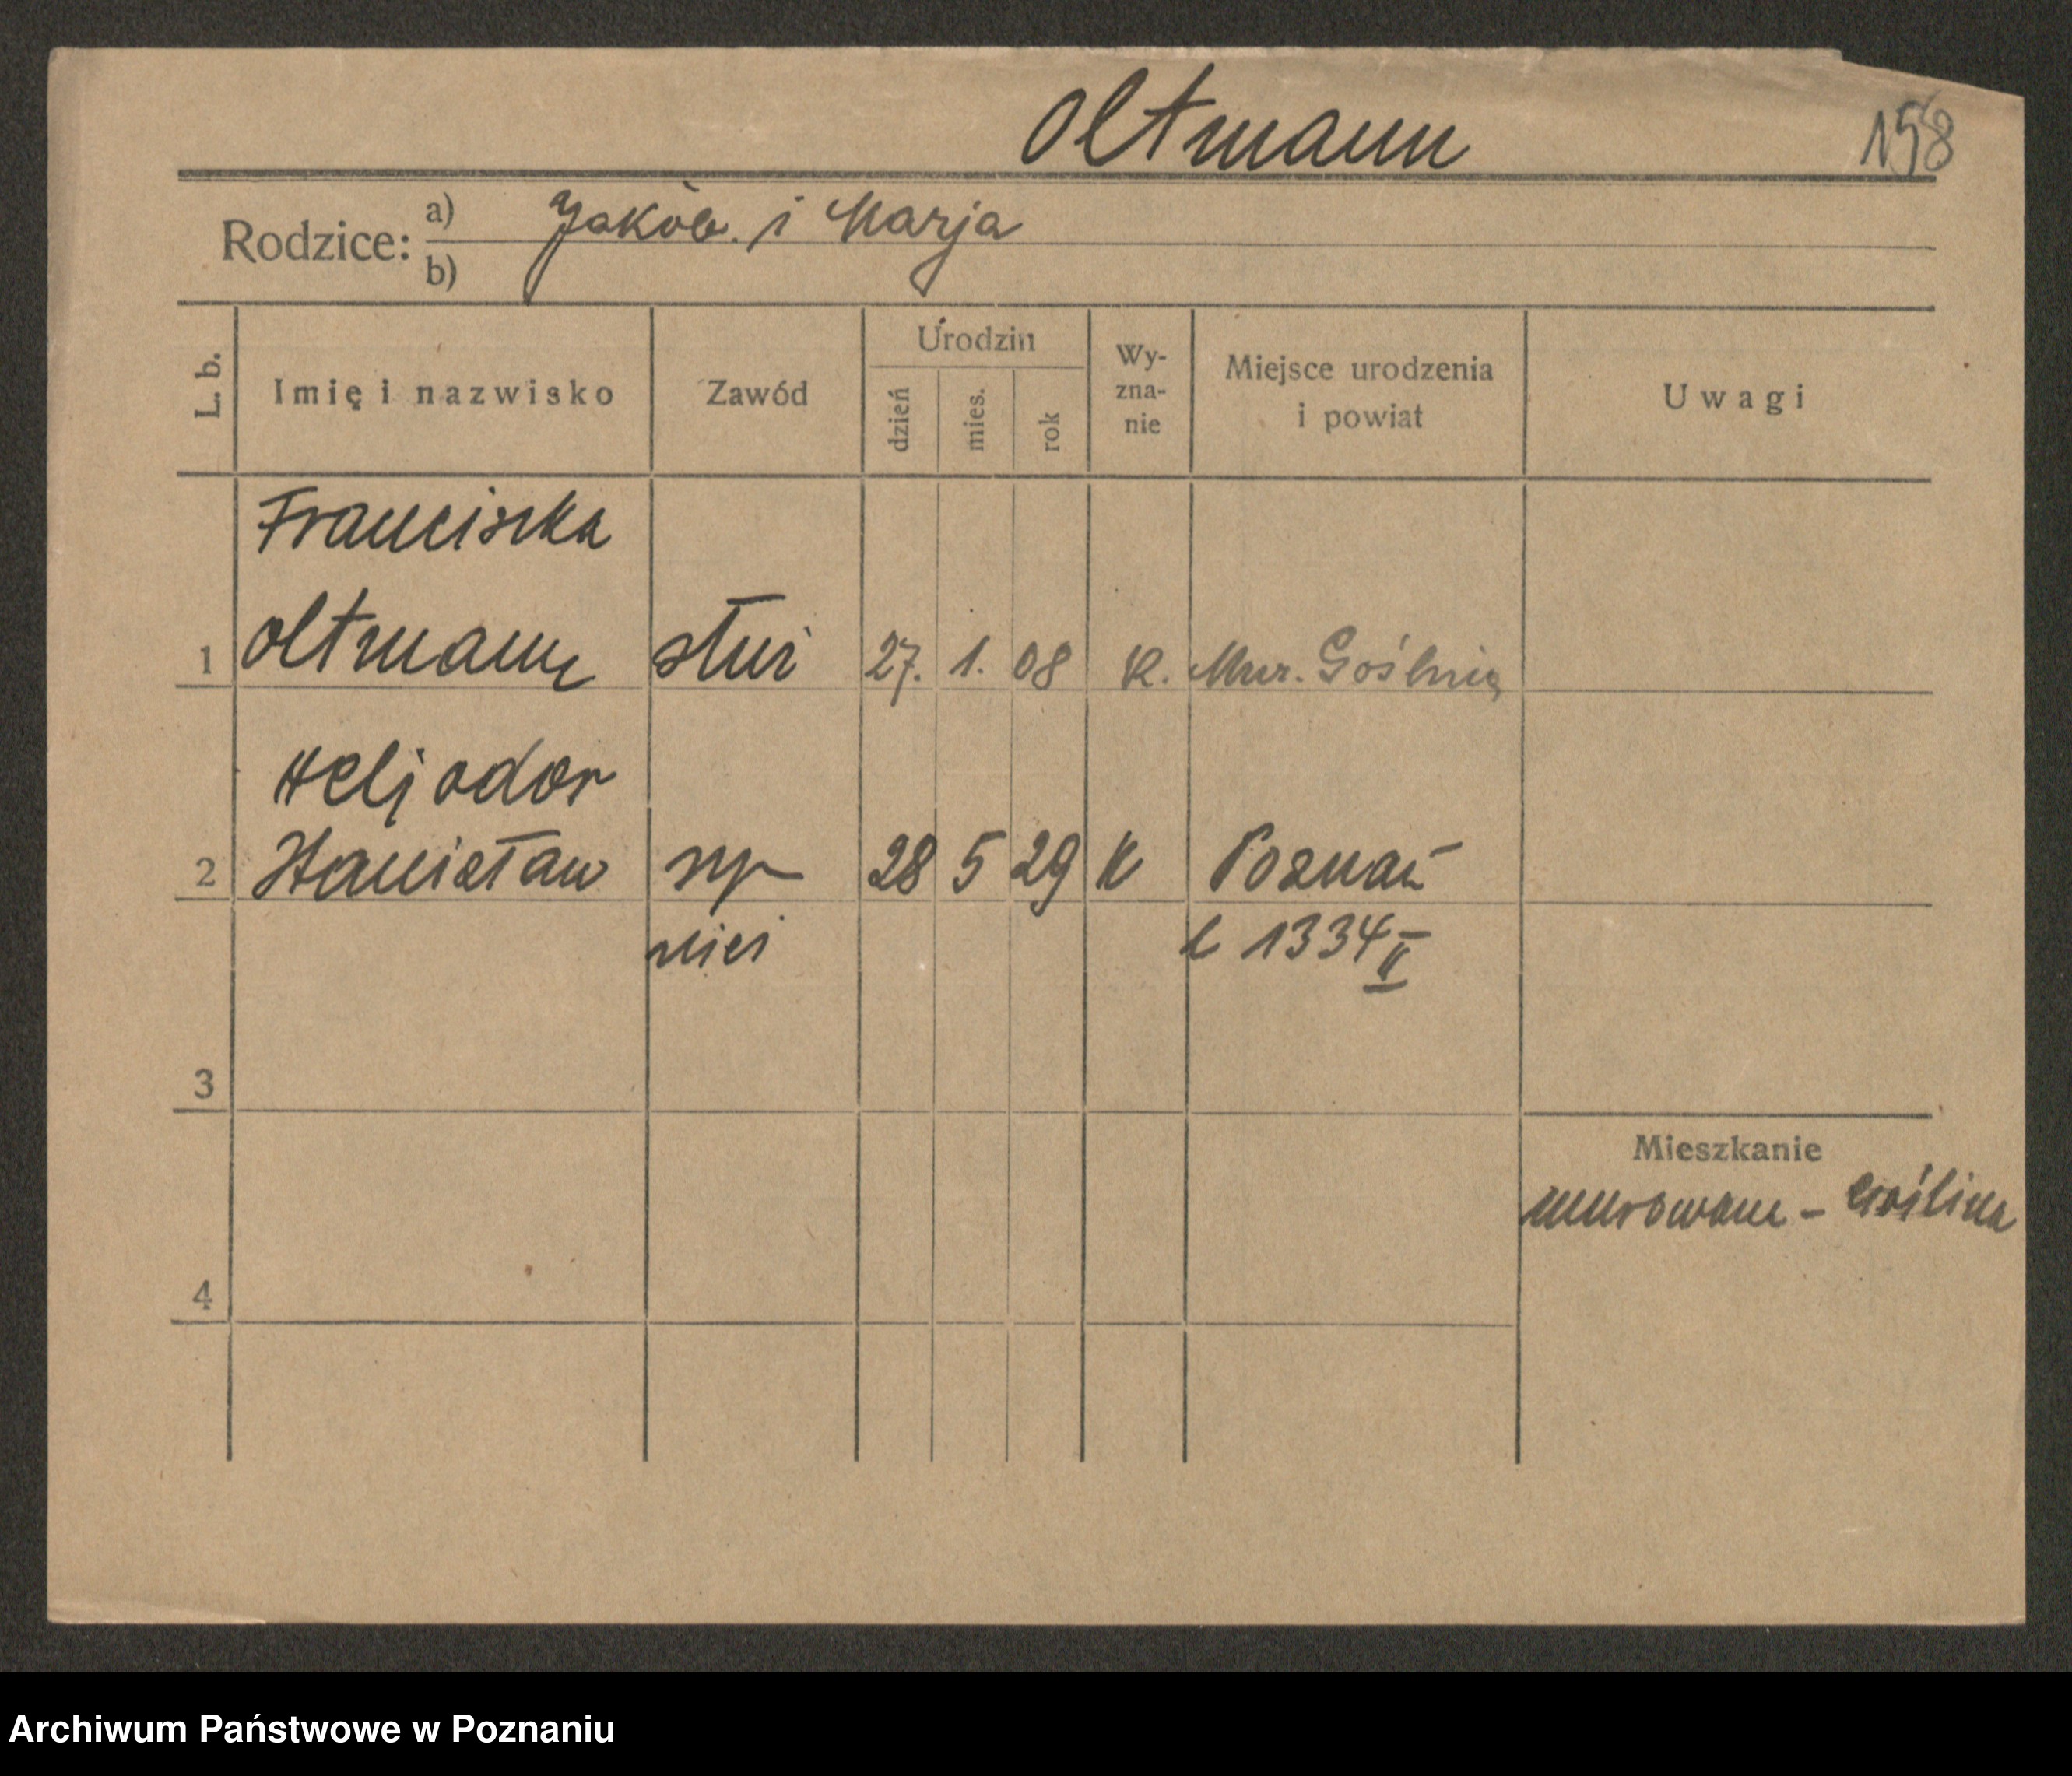 Oltmann 158
Rodzice: a) Jakób. i Marja
b)
L. b. Imię i nazwisko Zawód Urodzin dzień mies. rok Wy-zna-nie Miejsce urodzenia i powiat Uwagi
Franciszka
1 Oltmann służ 27. 1. 08 K. Mur. Goślnia
Heljodor
2 Stanisław syn 28 5 29 K Poznań
nieś L 1334 II
3
Mieszkanie
murowana - Goślina
4
Archiwum Państwowe w Poznaniu